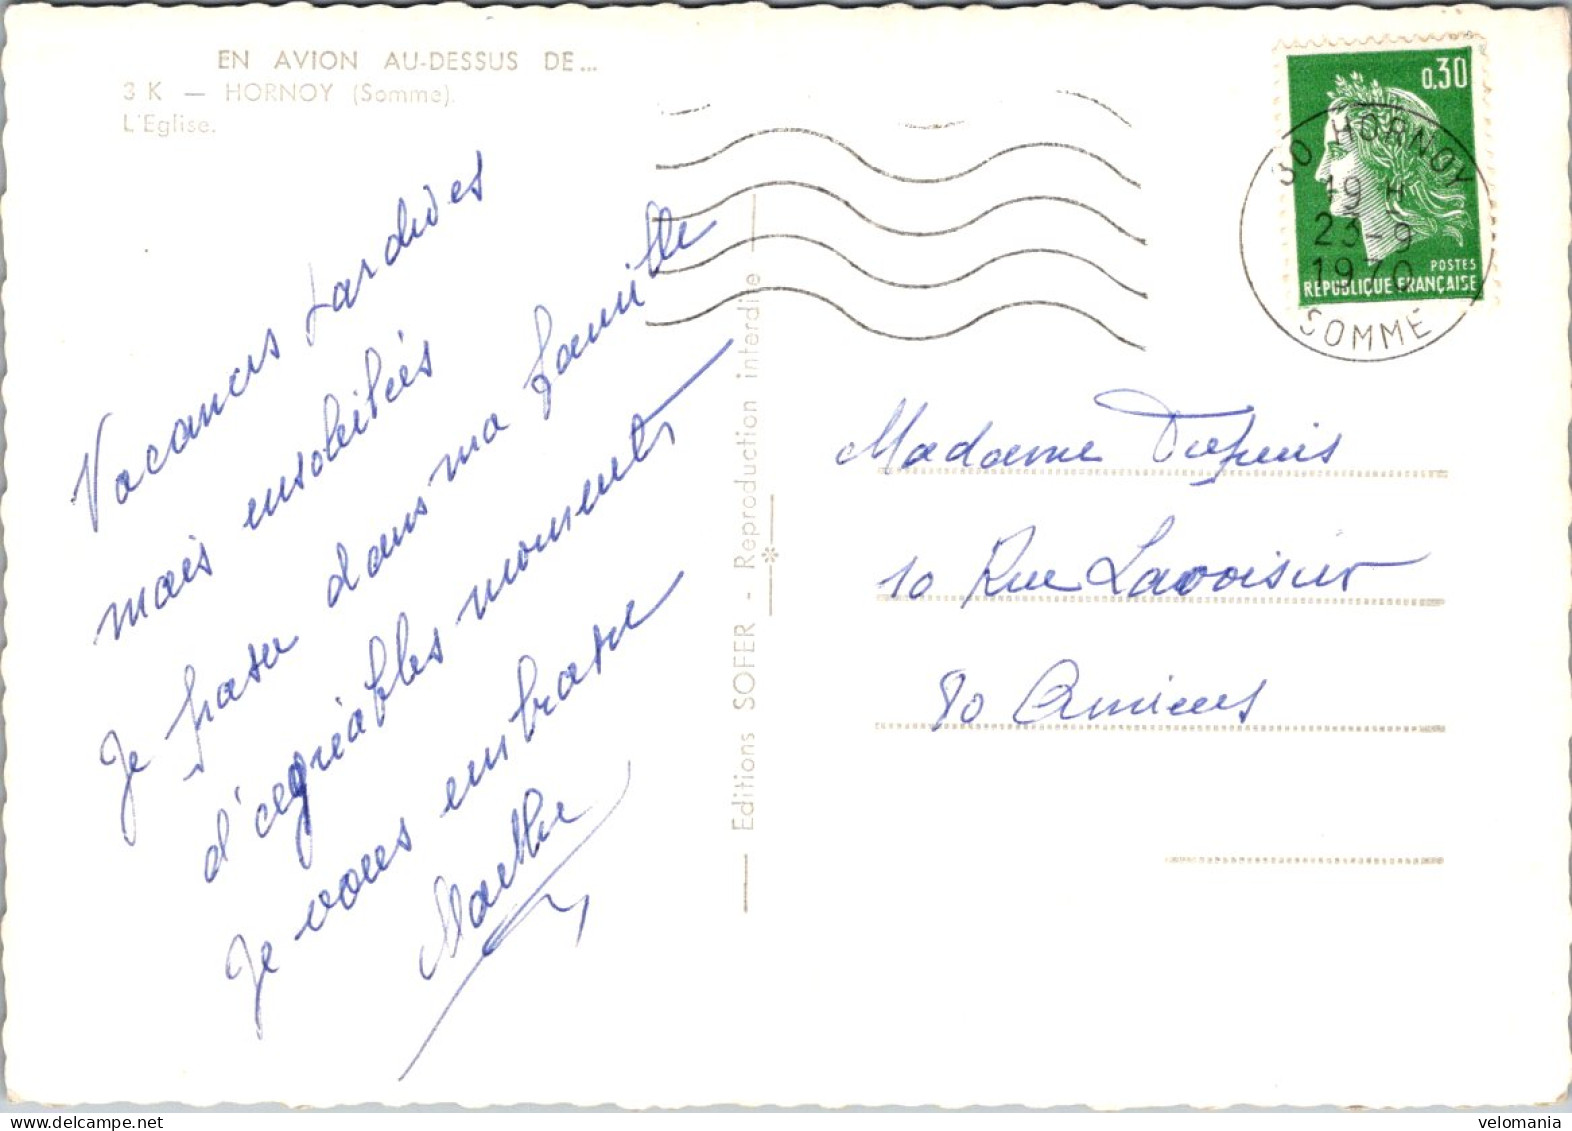 EN AVION AU-DESSUS DE...
3 K — HORNOY (Somme).
L'Eglise.
Vacances tardives
mais ensoleillées
Je passe dans ma famille
d'agréables moments
Je vous embrasse
Marthe
Editions SOFER - Reproduction interdite
0.30
POSTES
REPUBLIQUE FRANÇAISE
80 HORNOY
19 H
23-9
1970
SOMME
Madame Dupuis
10 Rue Lavoisier
80 Amiens
velomania